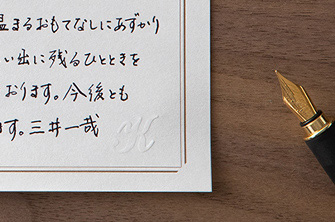 温まるおもてなしにあずかり
い出に残るひとときを
おります。今後とも
ます。三井一哉